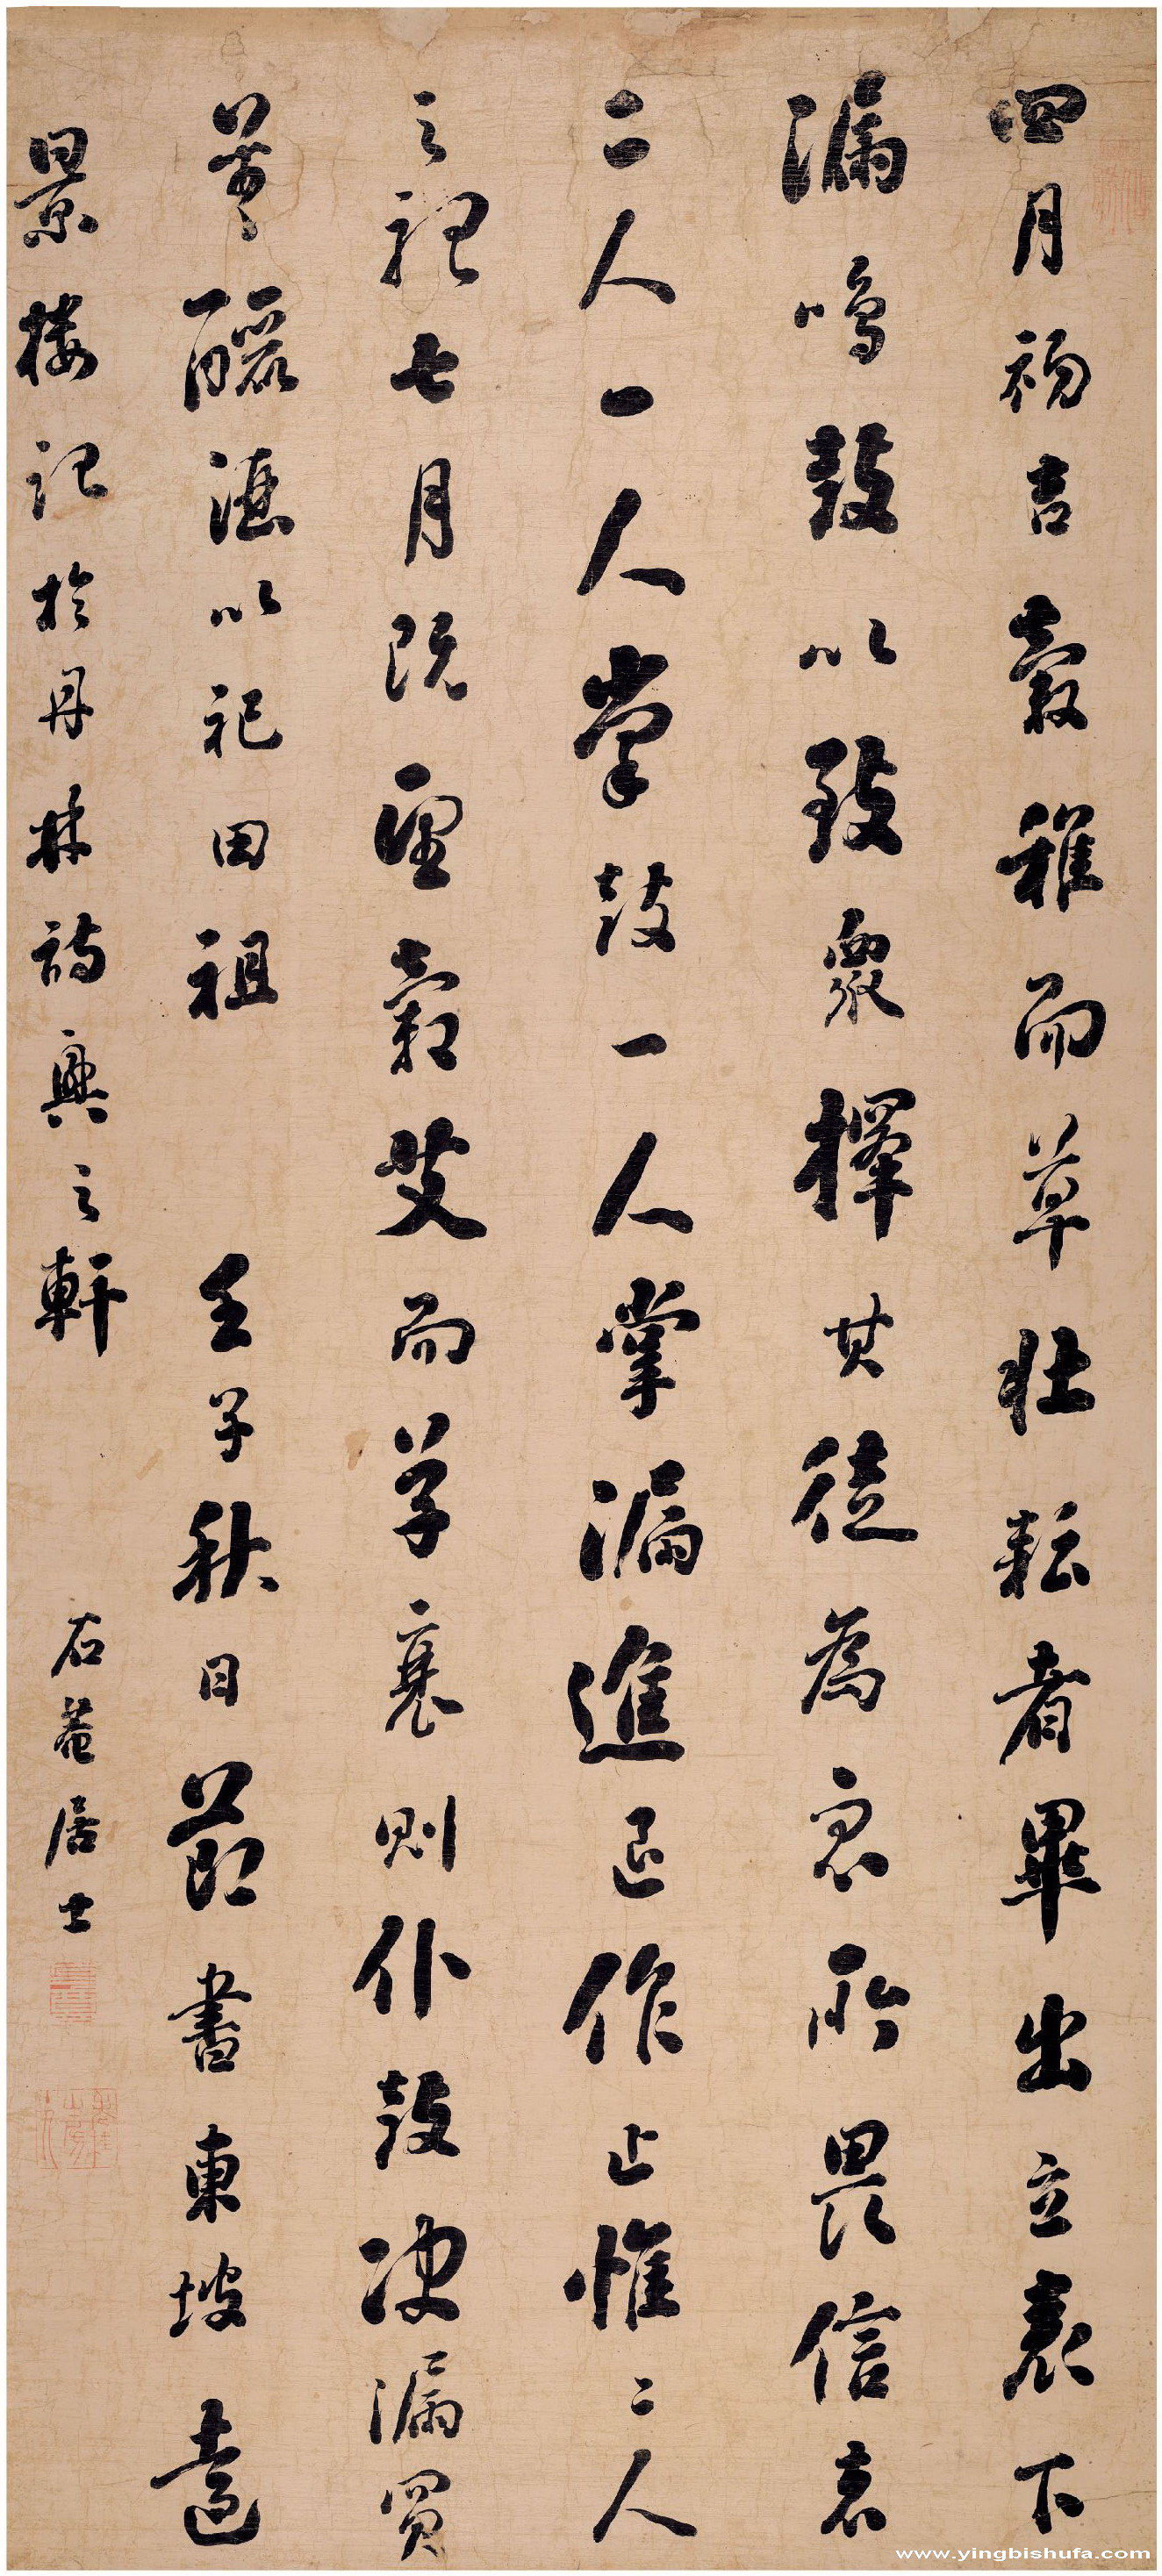 四月初吉穀稚而草壯耘者畢出立表下
漏鳴鼓以致眾擇其徒為眾所畏信者
二人一人掌鼓一人掌漏進退作止惟二人
之聽七月既望穀艾而草衰則仆鼓決漏買
羊釃酒以祀田祖 壬子秋日節書東坡遠
景樓記於丹林詩興之軒 石菴居士
www.yingbishufa.com